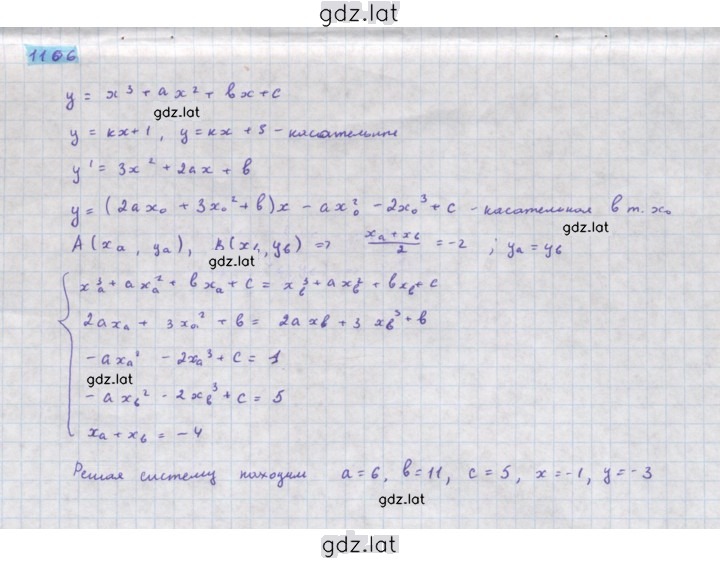 gdz.lat
1166
y = x³ + ax² + bx + c
gdz.lat
y = kx+1, y = kx + 5 - касательные
y' = 3x² + 2ax + b
y = (2ax₀ + 3x₀² + b)x - ax₀² - 2x₀³ + c - касательная в т. x₀
gdz.lat
A(xₐ, yₐ), B(x_b, y_b) => (xₐ + x_b)/2 = -2 ; yₐ = y_b
gdz.lat
xₐ³ + axₐ² + bxₐ + c = x_b³ + ax_b² + bx_b + c
2axₐ + 3xₐ² + b = 2ax_b + 3x_b³ + b
-axₐ² - 2xₐ³ + c = 1
gdz.lat
-ax_b² - 2x_b³ + c = 5
xₐ + x_b = -4
Решая систему находим a = 6, b = 11, c = 5, x = -1, y = -3
gdz.lat
gdz.lat